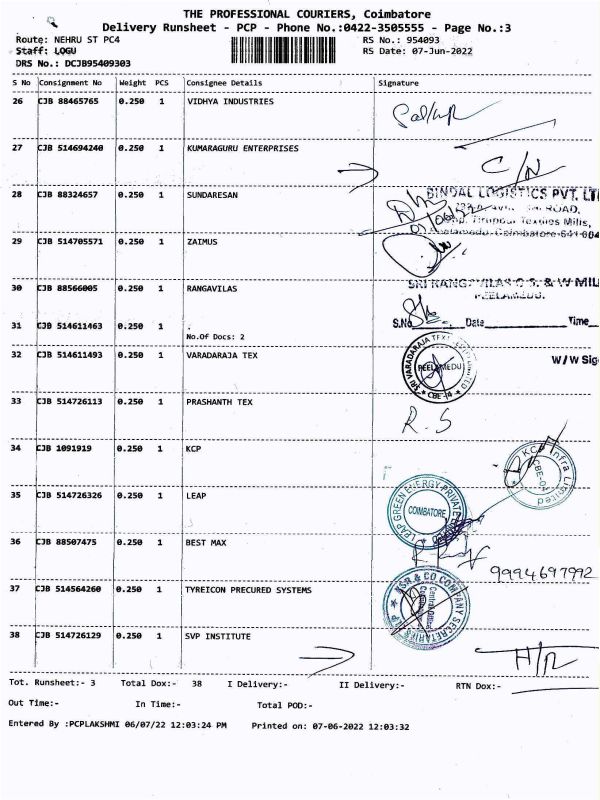 THE PROFESSIONAL COURIERS, Coimbatore
Delivery Runsheet - PCP - Phone No.:0422-3505555 - Page No.:3
Route: NEHRU ST PC4 RS No.: 954093
Staff: LOGU RS Date: 07-Jun-2022
DRS No.: DCJB95409303
S No Consignment No Weight PCS Consignee Details Signature
26 CJB 88465765 0.250 1 VIDHYA INDUSTRIES
27 CJB 514694240 0.250 1 KUMARAGURU ENTERPRISES
C/N
28 CJB 88324657 0.250 1 SUNDARESAN
BINDAL LOGISTICS PVT. LT
ROAD,
Tirupur Textiles Mills,
Peelamedu, Coimbatore-641 004
29 CJB 514705571 0.250 1 ZAIMUS
30 CJB 88566005 0.250 1 RANGAVILAS
SRI RANGAVILAS G.S. & W MIL
PEELAMEDU.
31 CJB 514611463 0.250 1 .
No.Of Docs: 2
S.No Date Time
32 CJB 514611493 0.250 1 VARADARAJA TEX
SRI VARADARAJA TEX LIMITED
PEELAMEDU
CBE-4
W/W Sig
33 CJB 514726113 0.250 1 PRASHANTH TEX
R.S
34 CJB 1091919 0.250 1 KCP
KCP Infra Limited
CBE-04
35 CJB 514726326 0.250 1 LEAP
LEAP GREEN ENERGY PRIVATE
COIMBATORE
36 CJB 88507475 0.250 1 BEST MAX
9994697992
37 CJB 514564260 0.250 1 TYREICON PRECURED SYSTEMS
& CO COMPANY SECRETARIES
38 CJB 514726129 0.250 1 SVP INSTITUTE
H/R
Tot. Runsheet:- 3 Total Dox:- 38 I Delivery:- II Delivery:- RTN Dox:-
Out Time:- In Time:- Total POD:-
Entered By :PCPLAKSHMI 06/07/22 12:03:24 PM Printed on: 07-06-2022 12:03:32